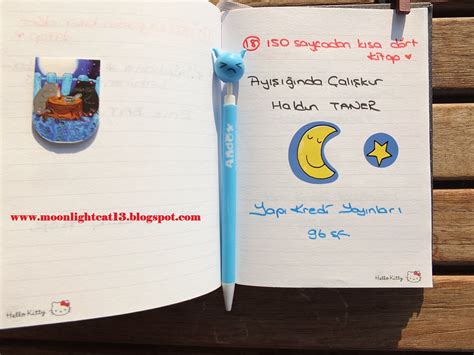 www.moonlightcat13.blogspot.com
Hello Kitty
18 150 sayfadan kısa dört
kitap
Ayışığında Çalışkur
Haldun TANER
Yapı Kredi Yayınları
96 sf.
Hello Kitty